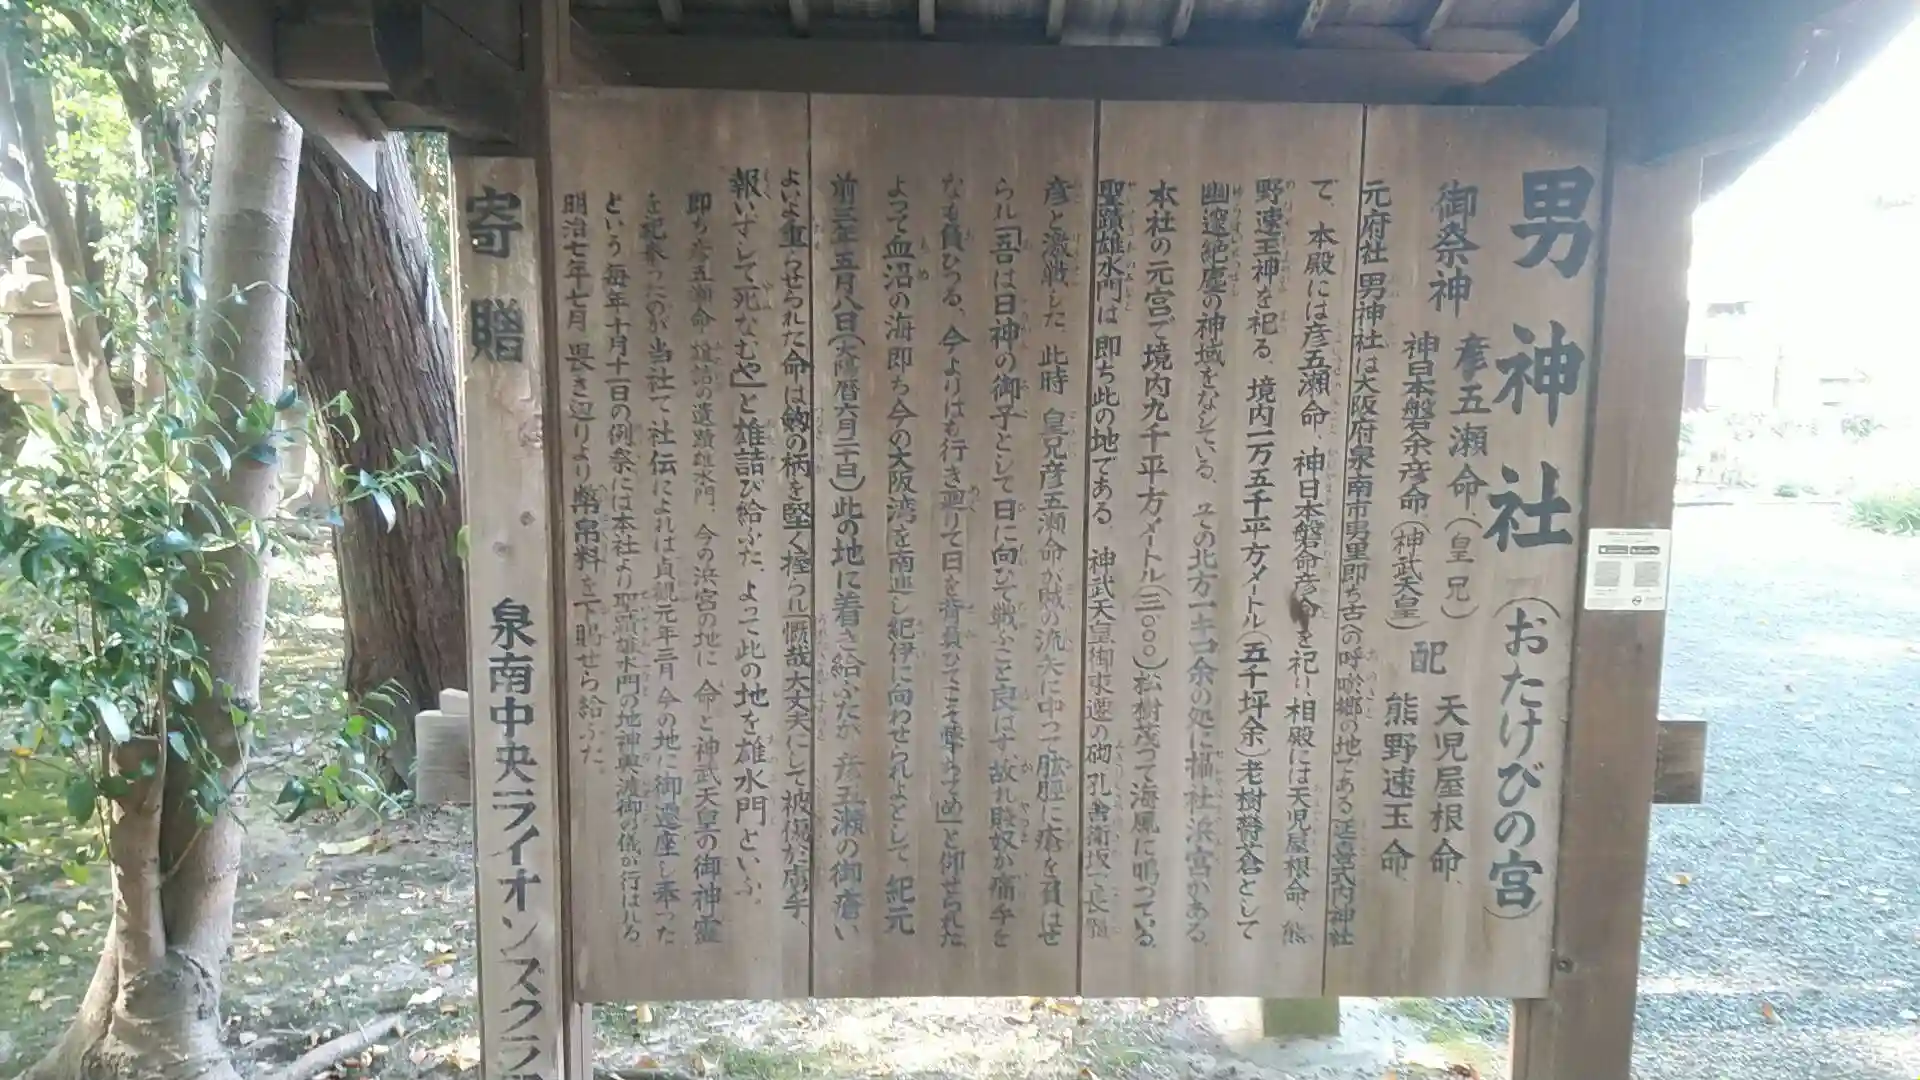 男神社(おたけびの宮)
御祭神
彦五瀬命、(皇兄)
神日本磐余彦命、(神武天皇)
配
天児屋根命、
熊野速玉命、
元府社 男神社は大阪府泉南市男里即ち古への呼唹郷の地である 延喜式内神社
で、本殿には彦五瀬命、神日本磐命彦命を祀り、相殿には天児屋根命、熊
野速玉神を祀る、境内一万五千平方メートル(五千坪余)老樹欝蒼として
幽邃絶塵の神域をなしている、その北方一キロ余の処に摂社浜宮がある
本社の元宮で境内九千平方メートル(三〇〇〇)松樹茂って海風に鳴っている
聖蹟雄水門は即ち此の地である、神武天皇御東遷の砌 孔舎衛坂で長髄
彦と激戦した、此時 皇兄彦五瀬命が賊の流矢に中って肱脛に瘡を負はせ
られ「吾は日神の御子として日に向ひて戦ふこと良はず故れ賎奴が痛手を
なも負ひつる、今よりはも行き廻りて日を背負ひてこそ撃ちてめ」と仰せられた
よって血沼の海即ち今の大阪湾を南進し紀伊に向わせられよとして、紀元
前三年五月八日(太陽暦六月二十日)此の地に着き給ふたが 彦五瀬の御瘡い
よいよ重らせられた命は釼の柄を堅く握られ「慨哉大丈夫にして被傷が虜手、
報いずして死なむや」と雄詰び給ふた、よって此の地を雄水門といふ。
即ち彦五瀬命 雄詰の遺蹟雄水門、今の浜宮の地に 命と神武天皇の御神霊
を祀奉ったのが当社で社伝によれば貞観元年三月 今の地に御遷座し奉った
という毎年十月十一日の例祭には本社より聖蹟雄水門の地神輿渡御の儀が行はれる
明治七年七月 畏き辺りより幣帛料を下賜せら給ふた。
寄贈
泉南中央ライオンズクラ